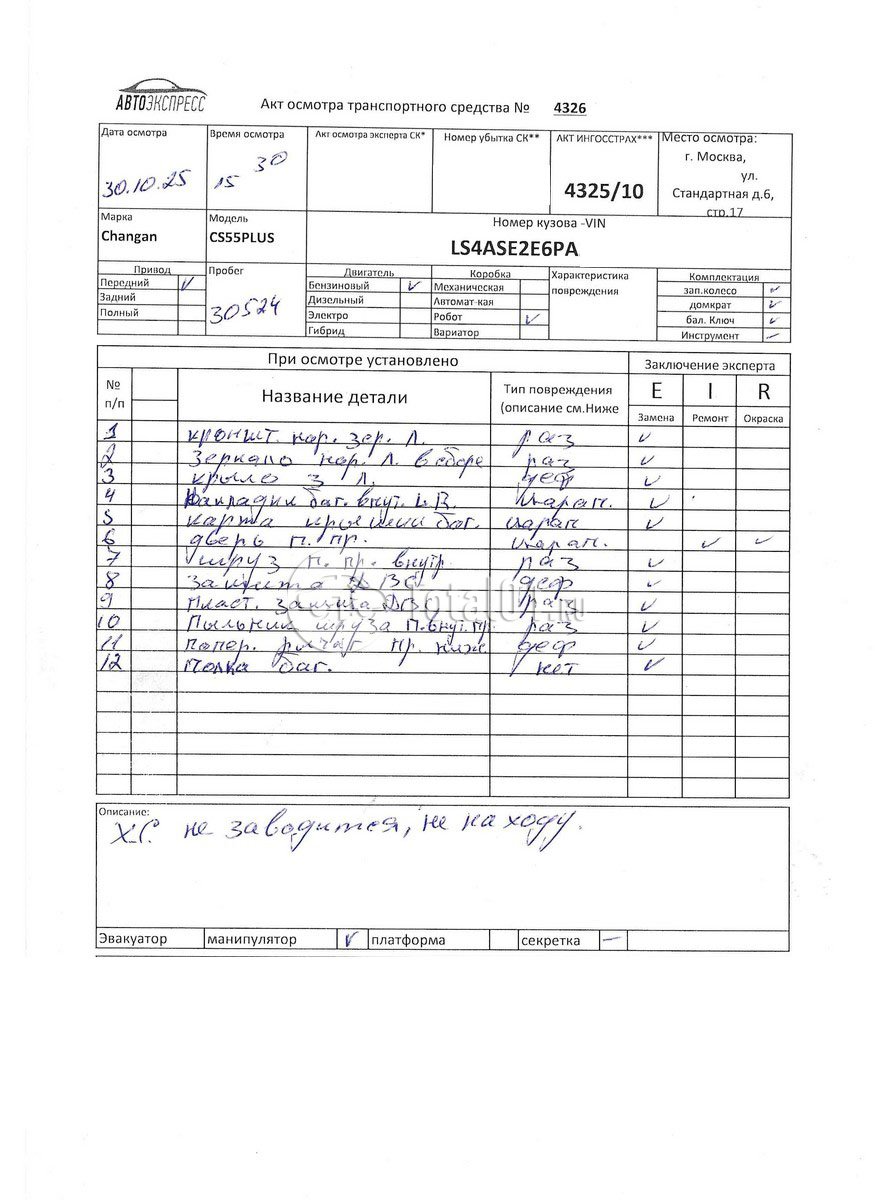 АВТОЭКСПРЕСС
Акт осмотра транспортного средства № 4326
Дата осмотра Время осмотра Акт осмотра эксперта СК* Номер убытка СК** АКТ ИНГОССТРАХ*** Место осмотра:
30.10.25 15 30 4325/10 г. Москва,
ул.
Стандартная д.6,
стр.17
Марка Модель Номер кузова -VIN
Changan CS55PLUS LS4ASE2E6PA
Привод Пробег Двигатель Коробка Характеристика Комплектация
Передний ✓ Бензиновый ✓ Механическая повреждения зап.колесо ✓
Задний 30524 Дизельный Автомат-кая домкрат ✓
Полный Электро Робот ✓ бал. Ключ ✓
Гибрид Вариатор Инструмент –
При осмотре установлено Заключение эксперта
№ п/п Название детали Тип повреждения (описание см.Ниже E I R
Замена Ремонт Окраска
1 кроншт. нар. зер. Л. раз ✓
2 Зеркало нар. Л. в сборе раз ✓
3 крыло З Л. деф ✓
4 Накладки баг. внут. царап. ✓
5 карта крышки баг. царап ✓
6 дверь п. пр. царап. ✓ ✓
7 шруз п. пр. внутр. раз ✓
8 Защита ДВС деф ✓
9 Пласт. защита ДВС раз ✓
10 Пыльник шруза п. внут. пр. раз ✓
11 попер. рычаг пр. ниж деф ✓
12 Полка баг. нет ✓
TotalUT.RU
Описание:
Х.С. не заводится, не на ходу.
Эвакуатор манипулятор ✓ платформа секретка –